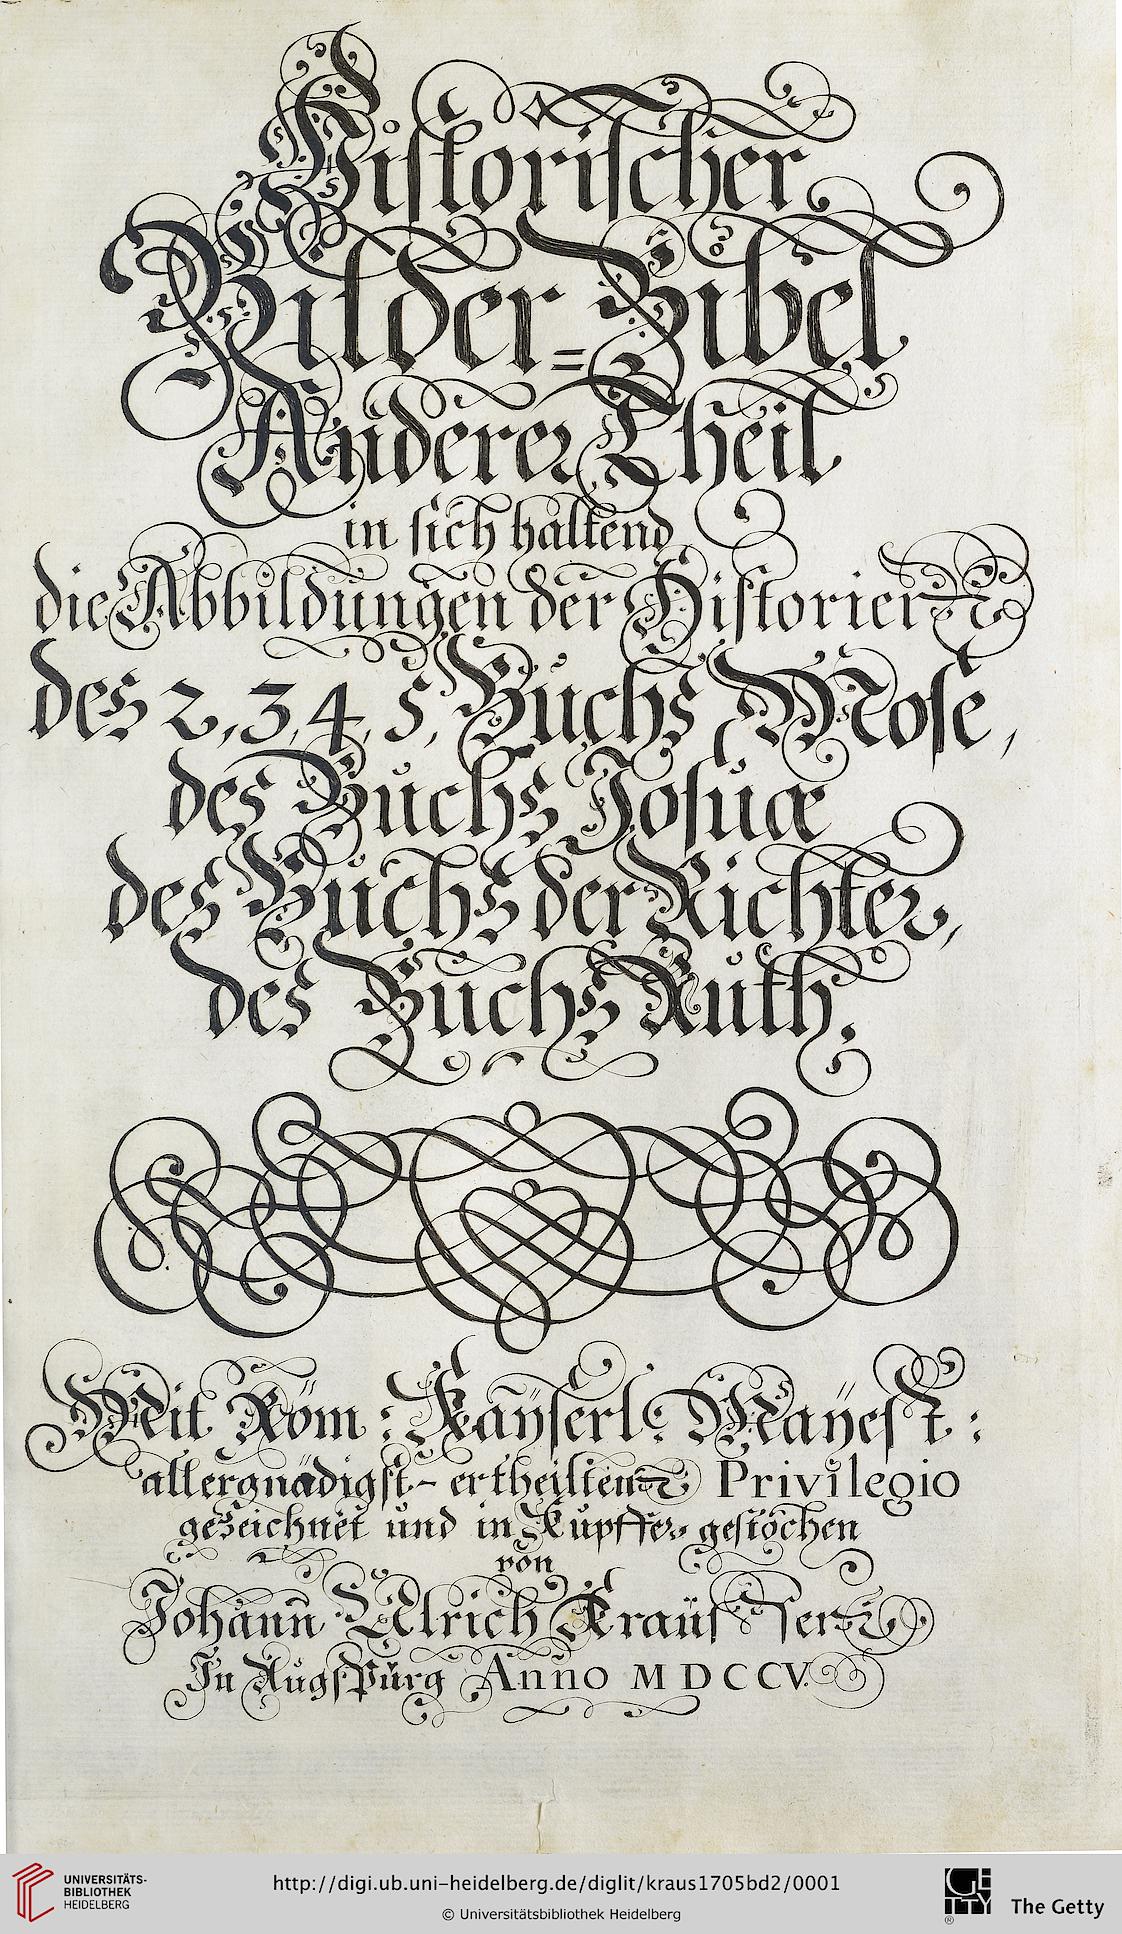 Historischer
Bilder=Bibel
Anderer Theil
in sich haltend
die Abbildungen der Historien
des 2, 3, 4, 5, Buchs Mose,
des Buchs Josuæ
des Buchs der Richter,
des Buchs Ruth.
Mit Röm: Kaÿserl: Maÿest:
allergnädigst-ertheilten Privilegio
gezeichnet und in Kupffer gestochen
von
Johann Ulrich Kraussen
In Augspurg Anno MDCCV.
UNIVERSITÄTS-
BIBLIOTHEK
HEIDELBERG
http://digi.ub.uni-heidelberg.de/diglit/kraus1705bd2/0001
© Universitätsbibliothek Heidelberg
GETTY
®
The Getty